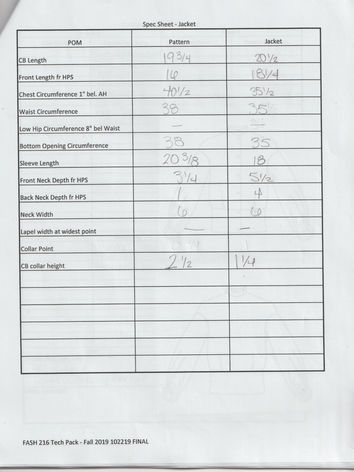 Spec Sheet - Jacket
POM Pattern Jacket
CB Length 19 3/4 20 1/2
Front Length fr HPS 16 18 1/4
Chest Circumference 1" bel. AH 40 1/2 35 1/2
Waist Circumference 38 35
Low Hip Circumference 8" bel Waist — —
Bottom Opening Circumference 38 35
Sleeve Length 20 3/8 18
Front Neck Depth fr HPS 3 1/4 5 1/2
Back Neck Depth fr HPS 1 4
Neck Width 6 6
Lapel width at widest point — —
Collar Point
CB collar height 2 1/2 1 1/4
FASH 216 Tech Pack - Fall 2019 102219 FINAL